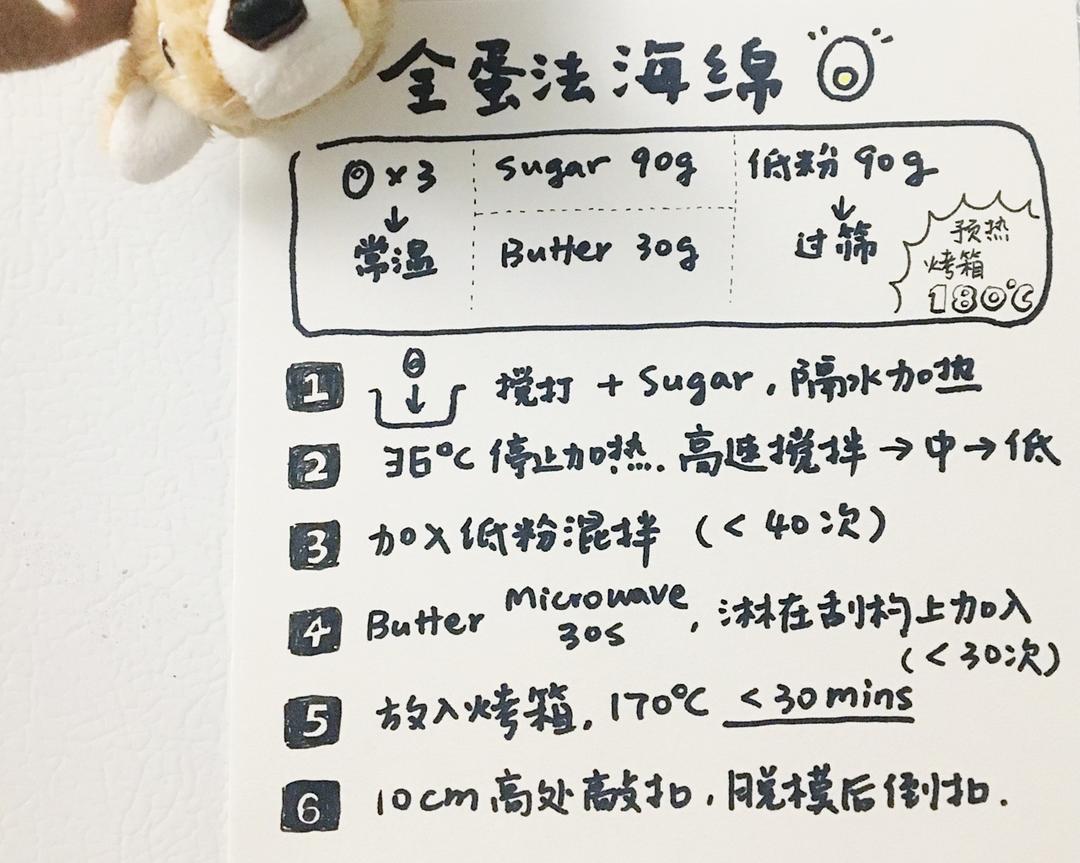 全蛋法海绵
×3 Sugar 90g 低粉 90g
↓ ↓
常温 Butter 30g 过筛
预热
烤箱
180℃
1 ↓ 搅打 + Sugar, 隔水加热
2 36℃ 停止加热. 高速搅拌 → 中 → 低
3 加入低粉混拌 (< 40次)
4 Butter Microwave 30s, 淋在刮杓上加入
(< 30次)
5 放入烤箱, 170℃ < 30 mins
6 10cm 高处敲扣, 脱模后倒扣.